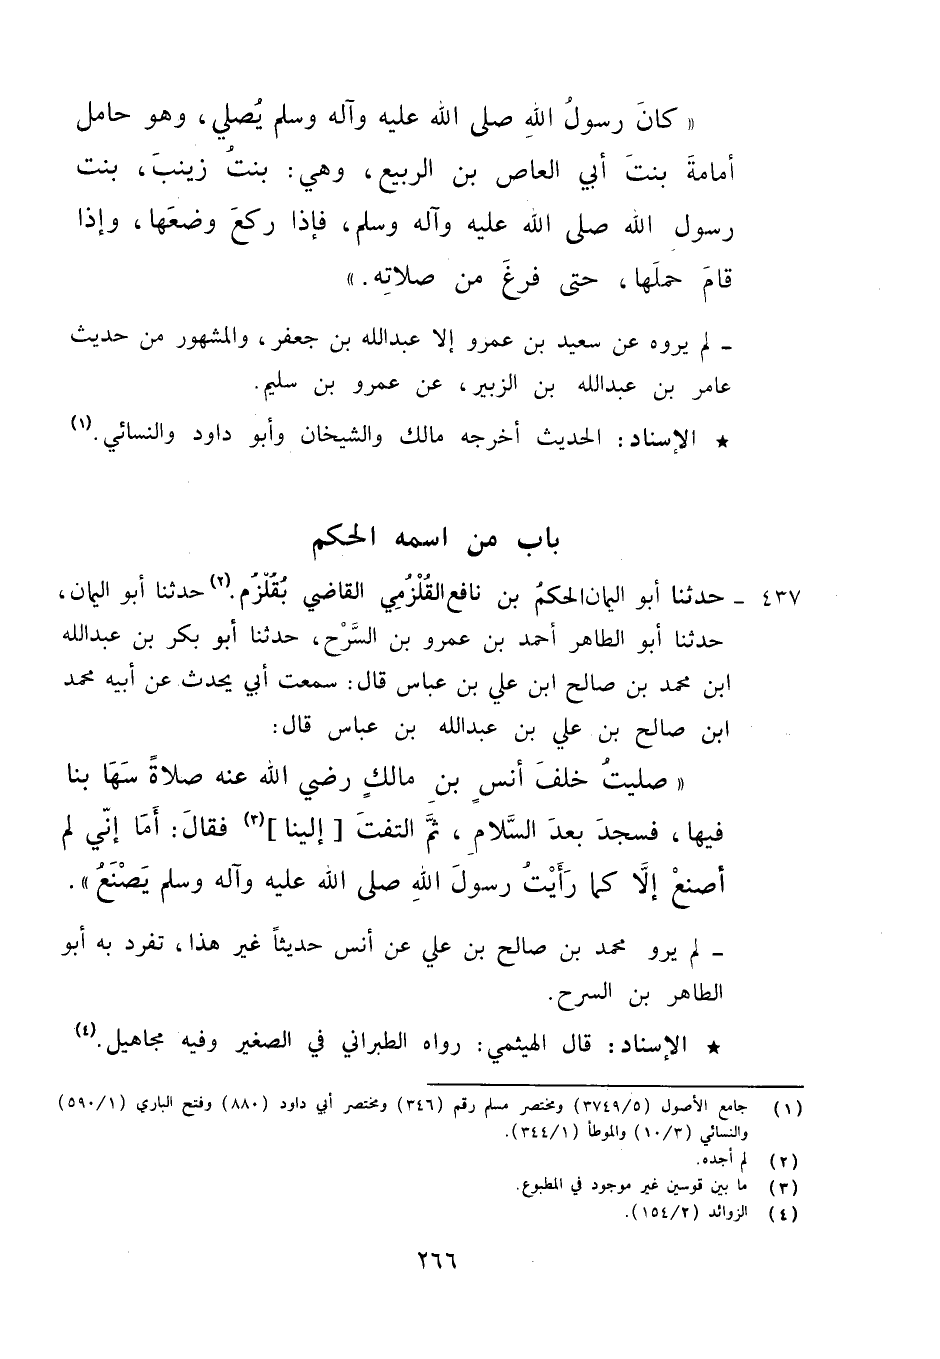 « كانَ رسولُ اللهِ صلى الله عليه وآله وسلم يُصلي، وهو حامل
أمامةَ بنتَ أبي العاص بن الربيع، وهي: بنتُ زينبَ، بنت
رسول الله صلى الله عليه وآله وسلم، فإذا ركعَ وضعَها، وإذا
قامَ حملَها، حتى فرغَ من صلاتِه. »
ـ لم يروه عن سعيد بن عمرو إلا عبدالله بن جعفر، والمشهور من حديث
عامر بن عبدالله بن الزبير، عن عمرو بن سليم.
★ الإسناد: الحديث أخرجه مالك والشيخان وأبو داود والنسائي.(١)
باب من اسمه الحكم
٤٣٧ ـ حدثنا أبو اليمان الحكمُ بن نافع القُلْزُمِي القاضي بُقُلْزُم.(٢) حدثنا أبو اليمان،
حدثنا أبو الطاهر أحمد بن عمرو بن السَّرْح، حدثنا أبو بكر بن عبدالله
ابن محمد بن صالح ابن علي بن عباس قال: سمعت أبي يحدث عن أبيه محمد
ابن صالح بن علي بن عبدالله بن عباس قال:
« صليتُ خلفَ أنسٍ بنِ مالكٍ رضي الله عنه صلاةً سَهَا بنا
فيها، فسجدَ بعدَ السَّلامِ، ثمَّ التفتَ [إلينا](٣) فقالَ: أَمَا إنّي لم
أصنعْ إلَّا كما رَأَيْتُ رسولَ اللهِ صلى الله عليه وآله وسلم يَصْنَعُ ».
ـ لم يرو محمد بن صالح بن علي عن أنس حديثاً غير هذا، تفرد به أبو
الطاهر بن السرح.
★ الإسناد: قال الهيثمي: رواه الطبراني في الصغير وفيه مجاهيل.(٤)
(١) جامع الأصول (٣٧٤٩/٥) ومختصر مسلم رقم (٣٤٦) ومختصر أبي داود (٨٨٠) وفتح الباري (٥٩٠/١)
والنسائي (١٠/٣) والموطأ (٣٤٤/١).
(٢) لم أجده.
(٣) ما بين قوسين غير موجود في المطبوع.
(٤) الزوائد (١٥٤/٢).
٢٦٦